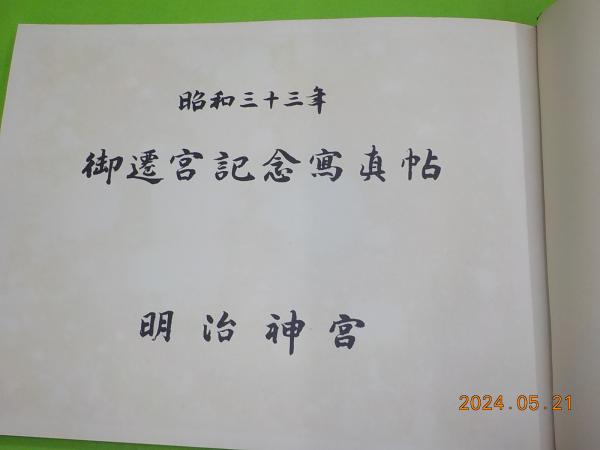 昭和三十三年
御遷宮記念寫真帖
明治神宮
2024.05.21